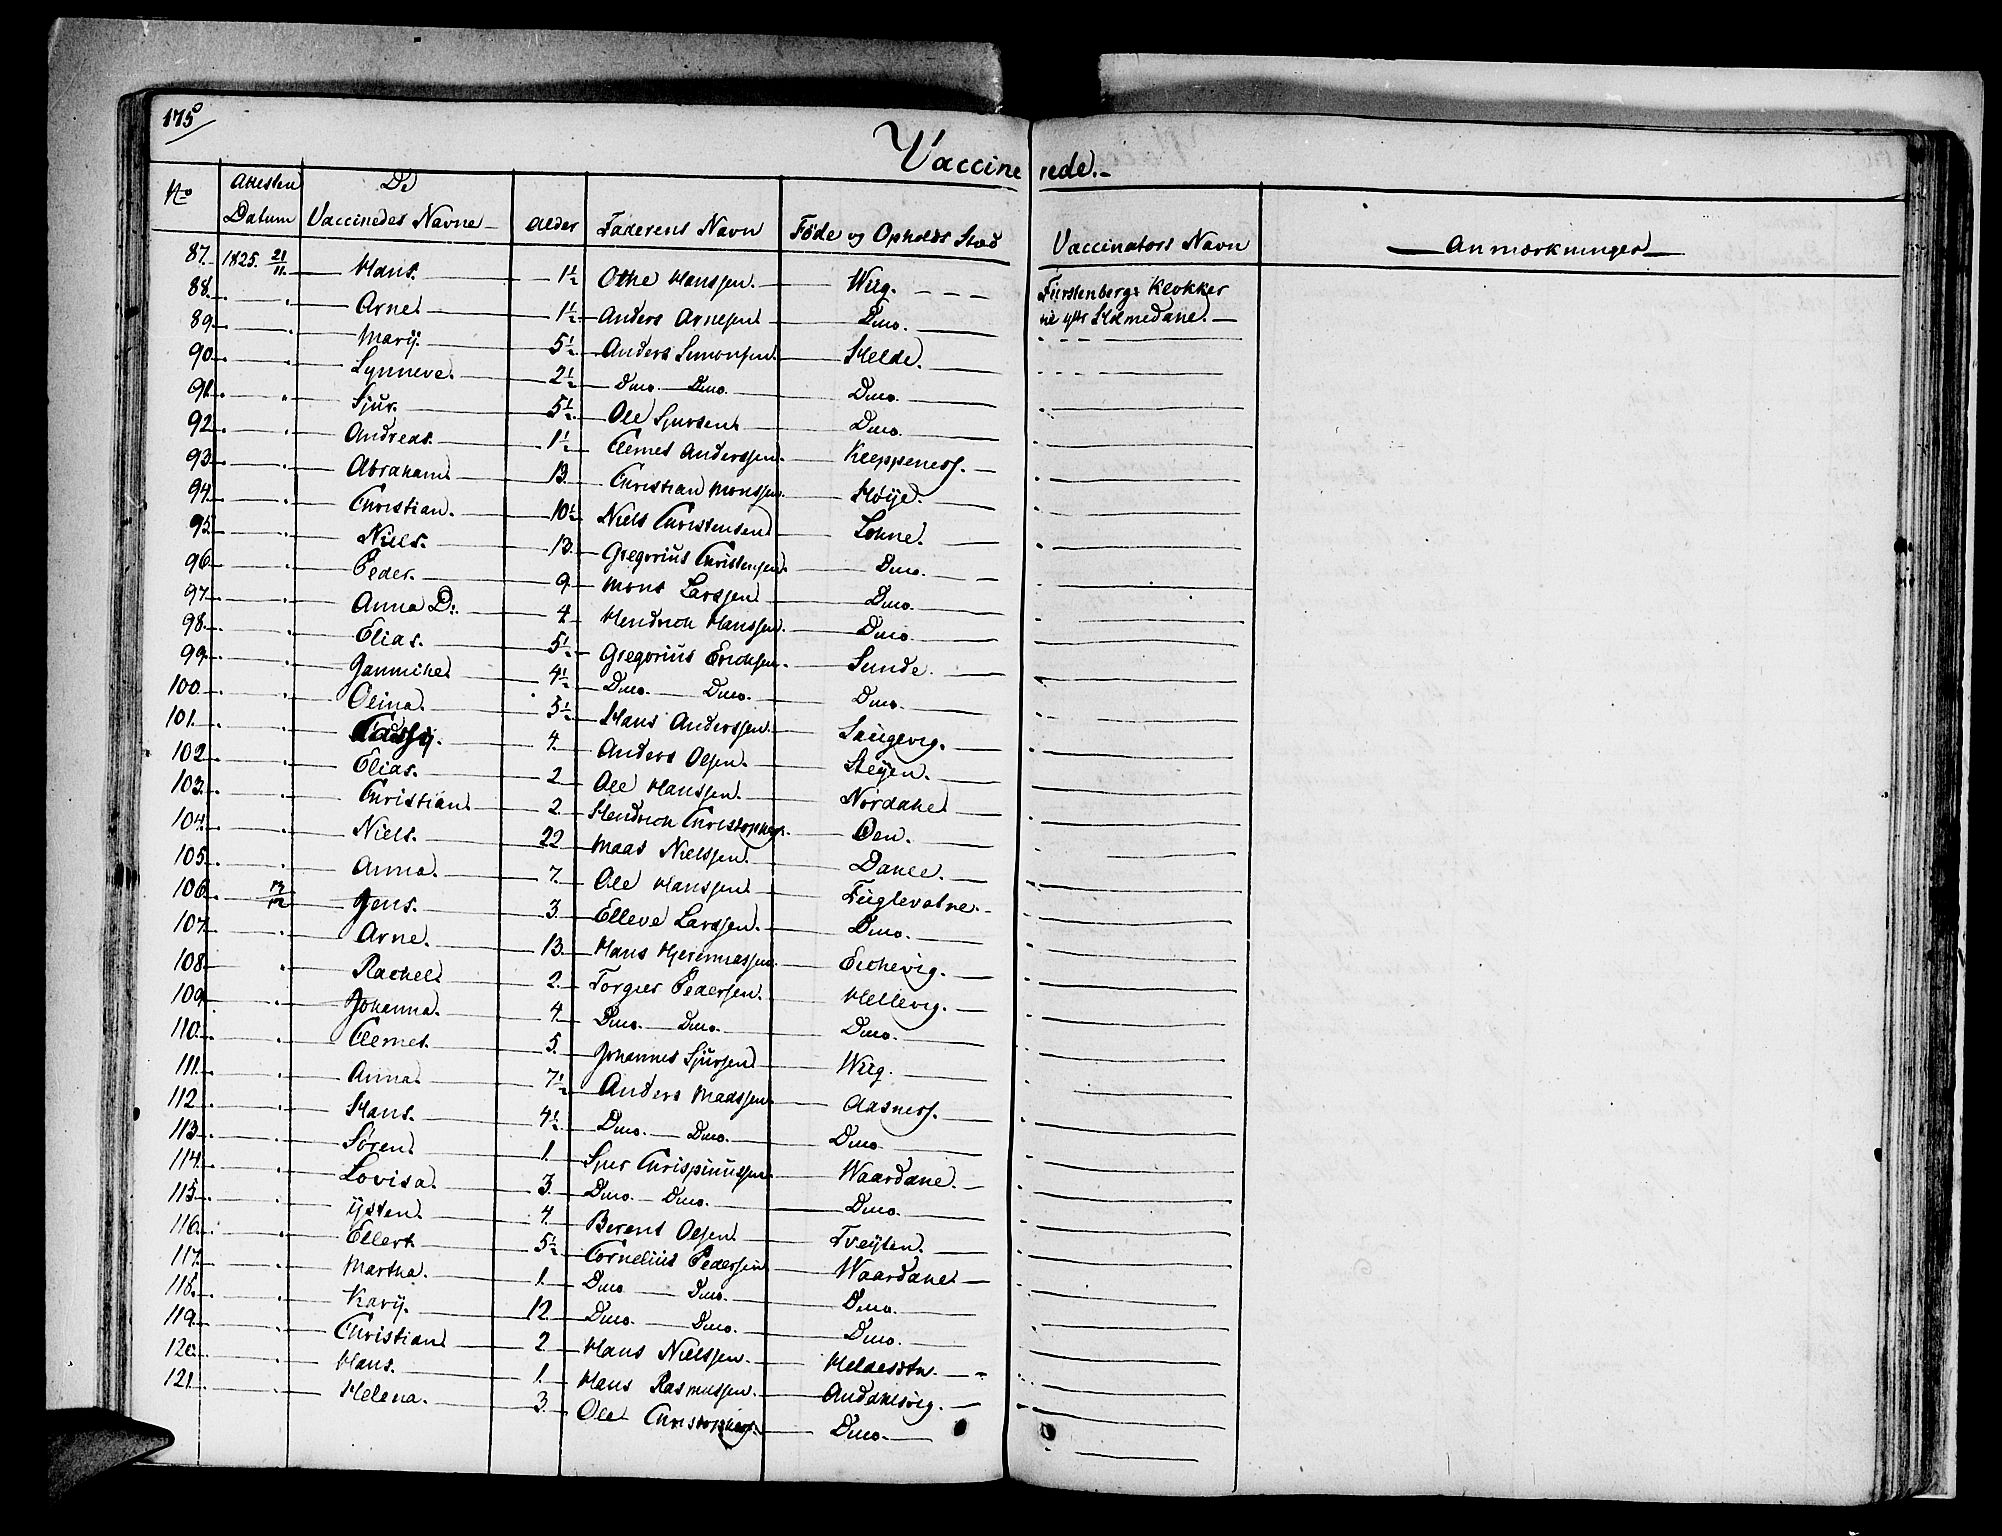 175
Vaccinerede.
No Attestens Datum De Vaccinedes Navne Alder Faderens Navn Föde og Opholds Stæd Vaccinators Navn Anmærkninger
87. 1825. 21/11 Hans. 1½ Othe Hanssen. Wiig. Fürstenberg, Klokker
88. Arne 1½ Anders Arnesen Dmo. til ytr Holmedahl.
89. Mary. 5½ Anders Simonsen. Helde.
90. Synneve. 2½ Dmo. Dmo. Dmo.
91. Sjur. 5½ Ole Sjursen Dmo.
92. Andreas. 1½ Clemet Anderssen.
93. Abraham 13. Christian Monssen. Höije.
94. Christian. 10½ Niels Christensen Lohne.
95. Niels. 13. Gregorius Christensen. Dmo.
96. Peder. 9. Mons Larssen Dmo.
97. Anna D: 4. Hendrich Hanssen. Dmo.
98. Elias. 5½ Gregorius Erichsen. Sunde.
99. Janniche 4½ Dmo. Dmo. Dmo.
100. Olina. 3½ Hans Anderssen. Saugevig.
101. 4. Anders Olsen. Steyen.
102. Elias. 2 Ole Hanssen. Nordahl
103. Christian 2. Hendrich Christophers. Öen.
104. Niels. 22 Maas Nielssen. Dahle.
105. Anna. 7. Ole Hanssen Fuglevatne.
106. Jens. 3. Elleve Larssen. Dmo.
107. Arne. 13. Hans Hieremiassen. Eichevig.
108. Rachel 2. Torgier Pedersen. Hellevig.
109. Johanna. 4. Dmo. Dmo. Dmo.
110. Clemet. 5. Johannes Sjursen Wiig.
111. Anna. 7½ Anders Madssen. Aasnes.
112. Hans. 4½ Dmo. Dmo. Dmo.
113. Sören 1. Sjur Chrispinussen. Waardahl.
114. Lovisa. 3. Dmo. Dmo. Dmo.
115. ijsten. 4. Berent Olsen Tveyten.
116. Ellert 5½ Cornelius Pedersen Waardahl
117. Martha. 1. Dmo. Dmo. Dmo.
118. Kary. 12. Dmo. Dmo. Dmo.
119. Christian 2 Hans Nielssen.
120. Hans. 1. Hans Rasmussen. Andahlsvig.
121. Helena. 3. Ole Christophers. Dmo.